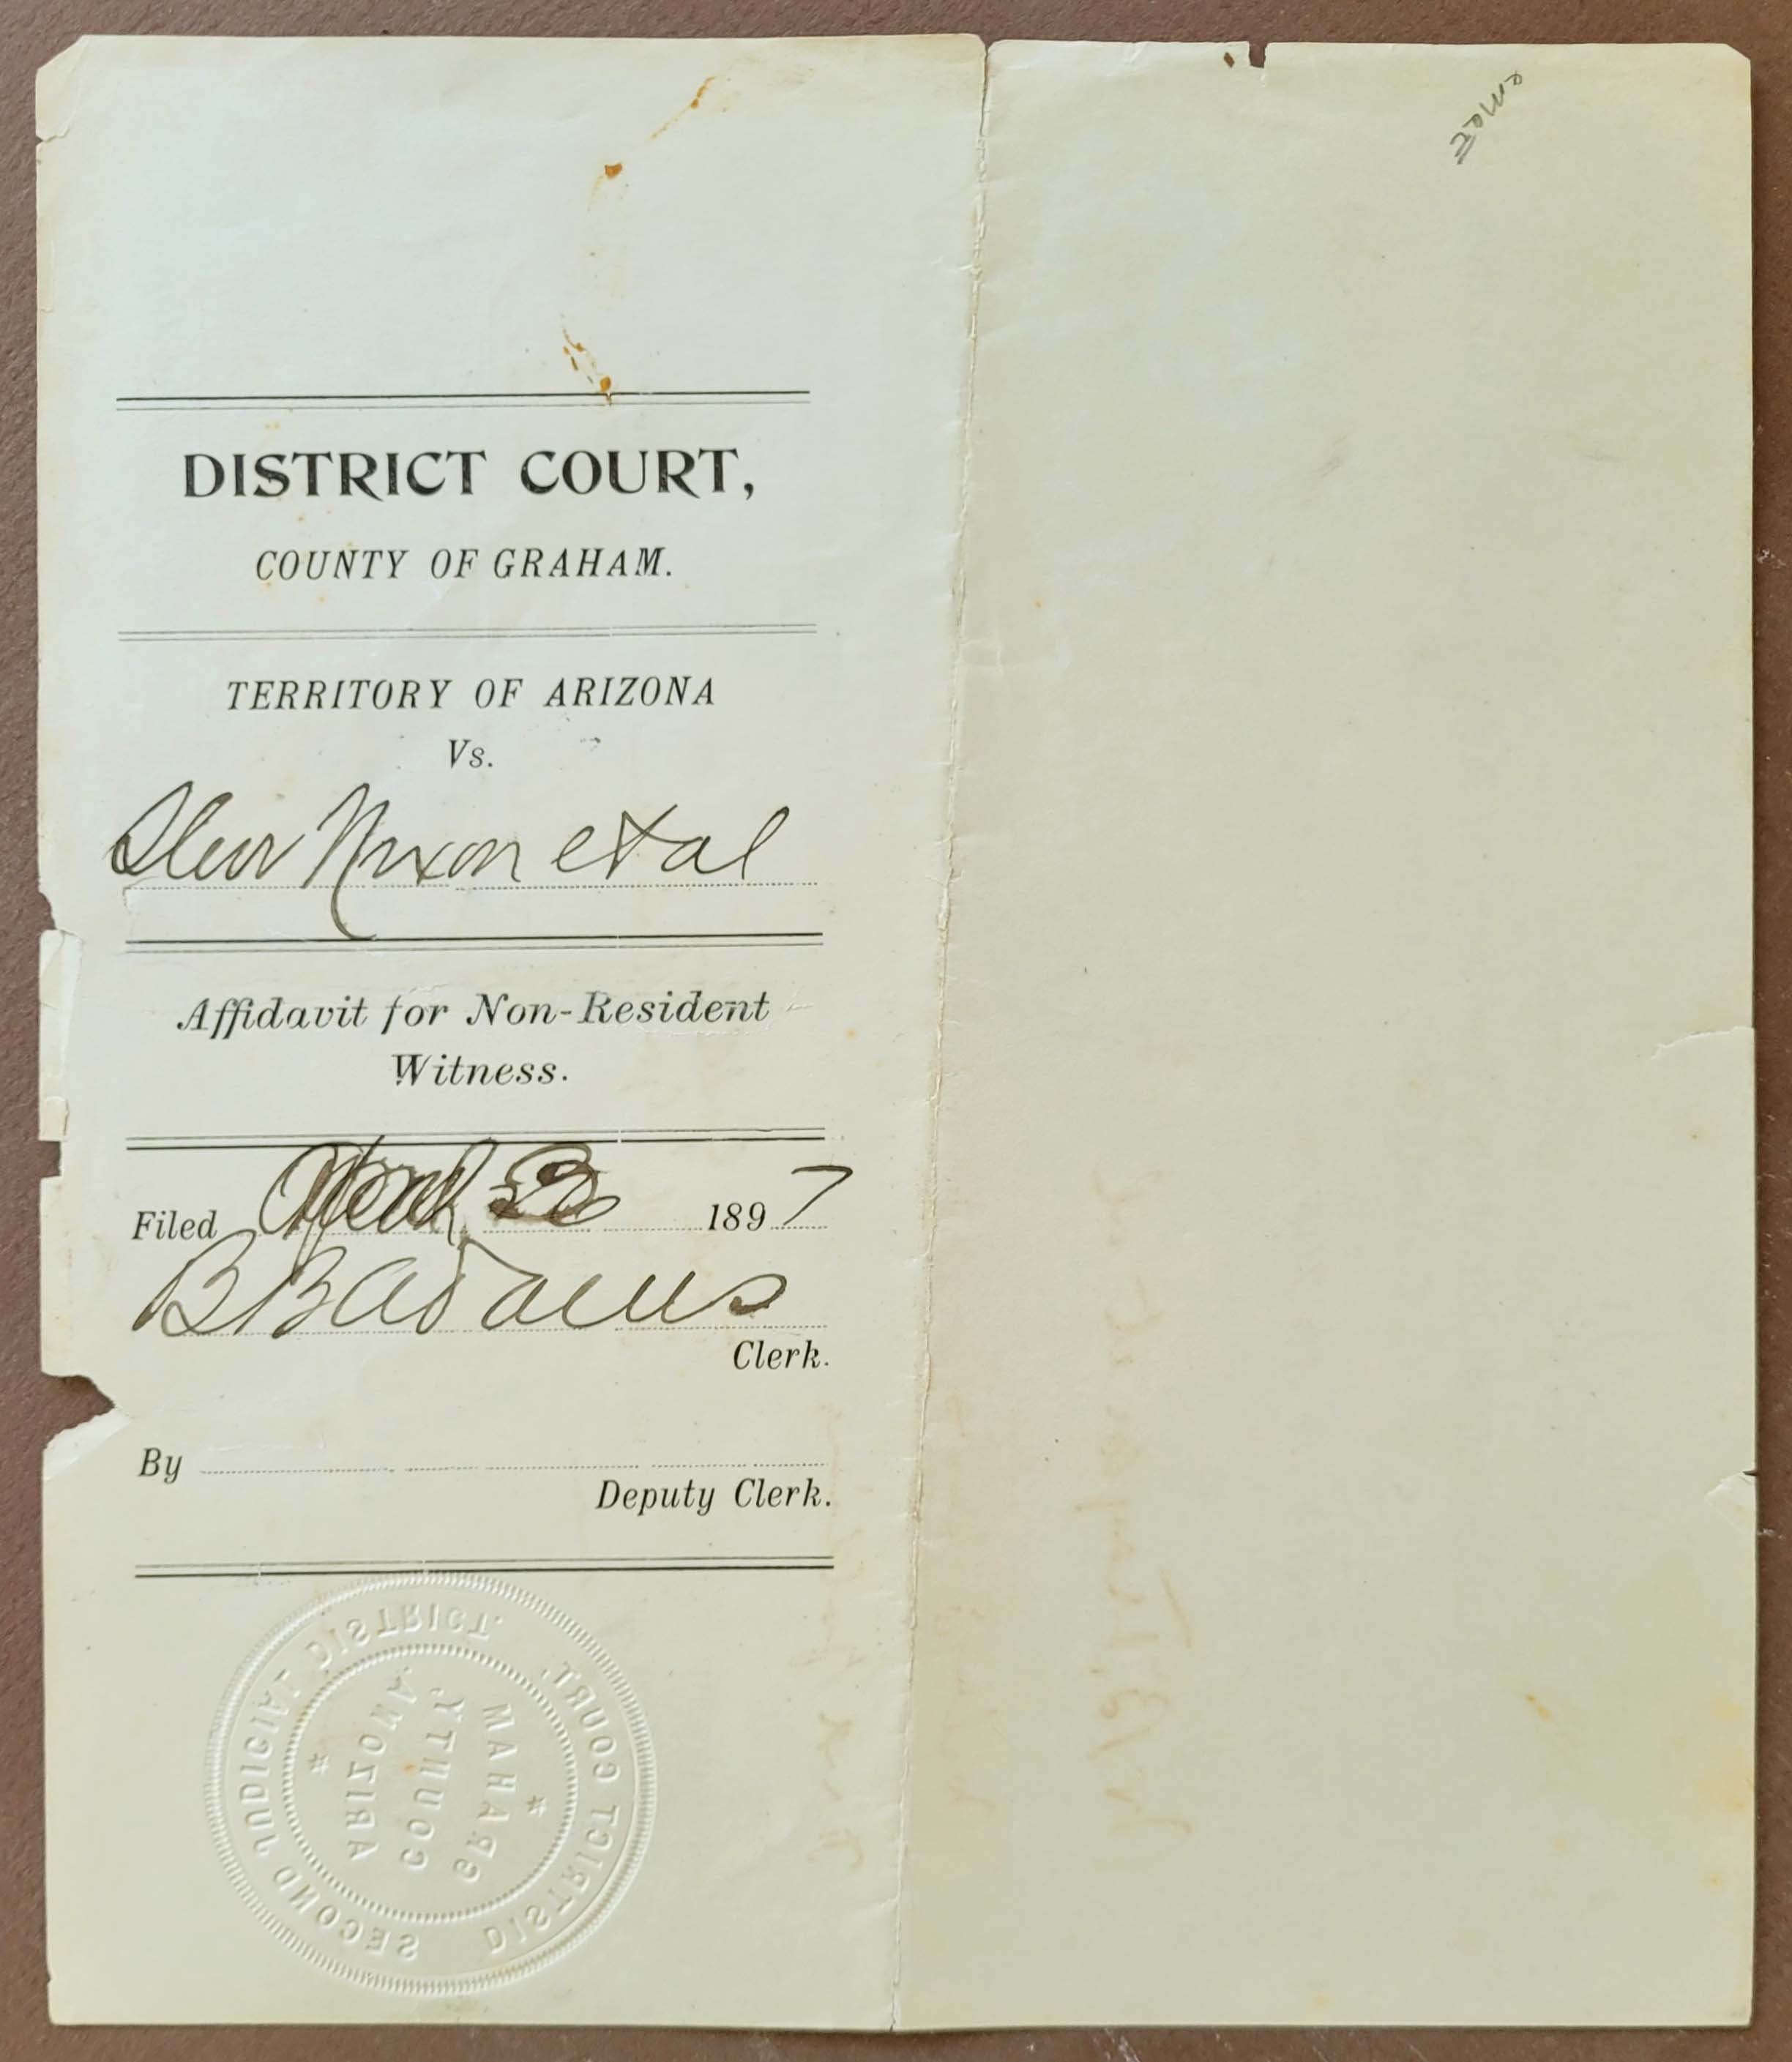 DISTRICT COURT,
COUNTY OF GRAHAM.
TERRITORY OF ARIZONA
Vs.
Nixon et al
Affidavit for Non-Resident
Witness.
Filed April 1897
B B Adams
Clerk.
By
Deputy Clerk.
SECOND JUDICIAL DISTRICT.
DISTRICT COURT,
GRAHAM
COUNTY,
ARIZONA.